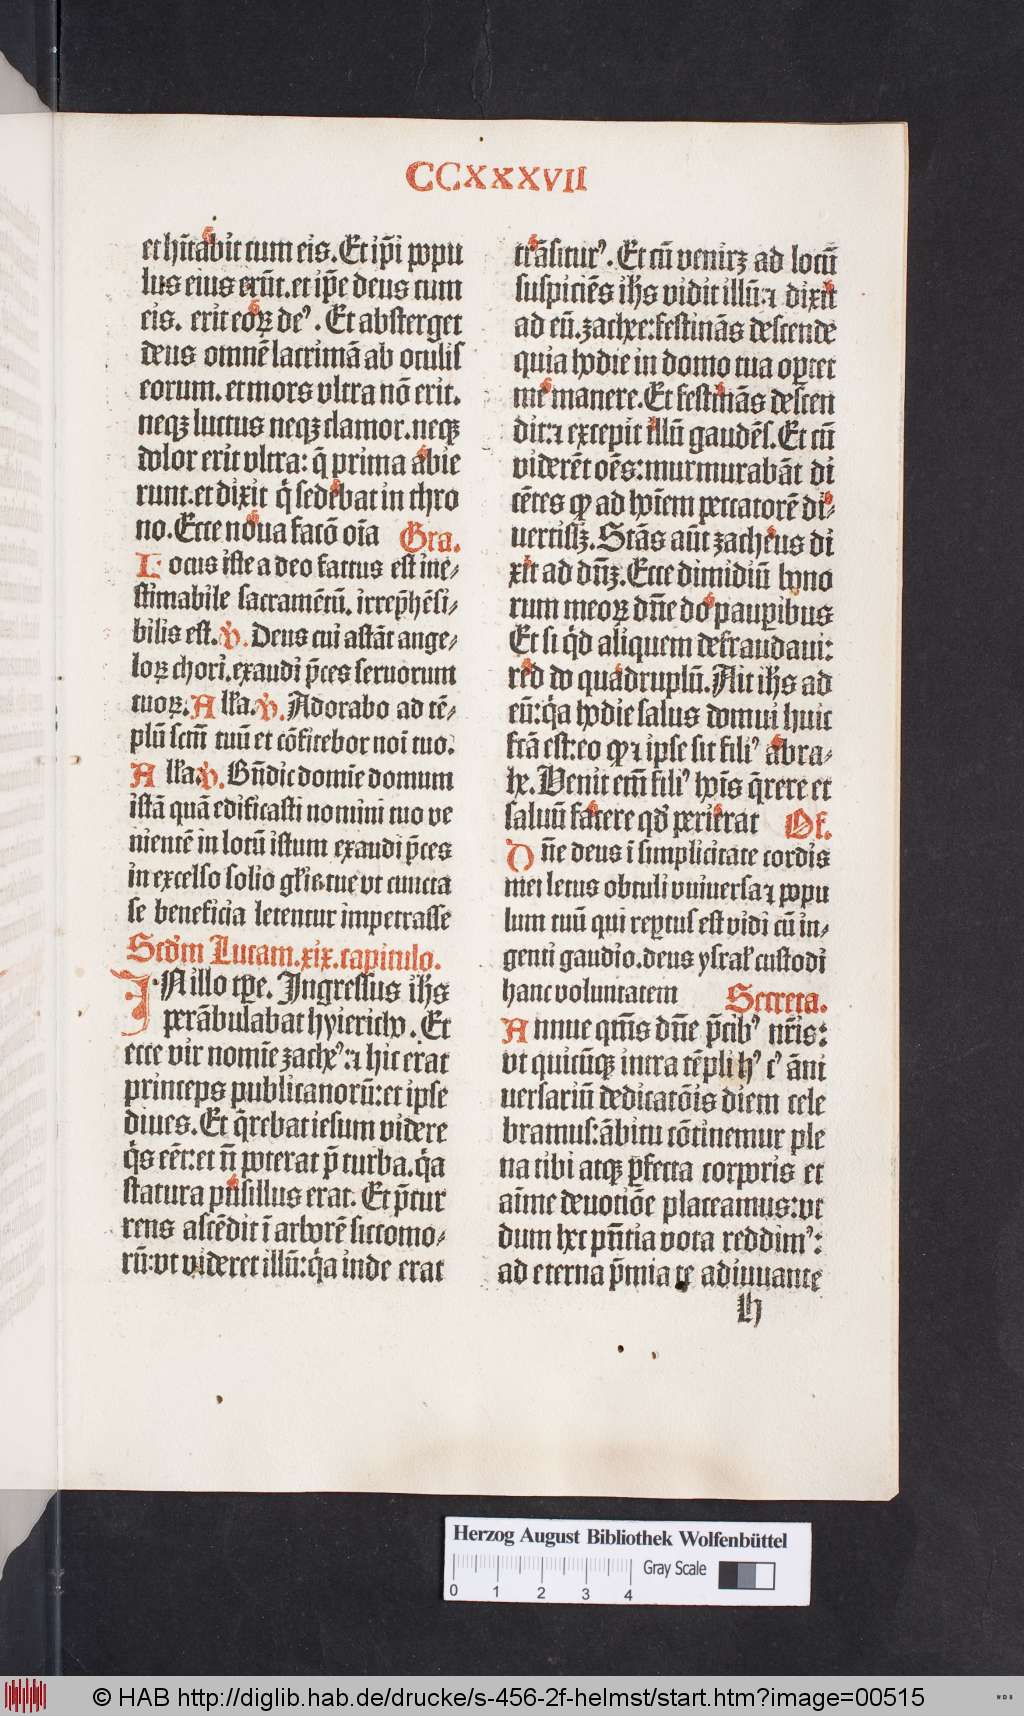 CCXXXVII
et hītabit cum eis. Et ip̄i popu
lus eius erūt. et ip̄e deus cum
eis. erit eoꝝ deꝰ. Et absterget
deus omnē lacrimā ab oculis
eorum. et mors vltra nō erit.
neqꝫ luctus neqꝫ clamor. neqꝫ
dolor erit vltra: q̄ prima abie
runt. et dixit q̇ sedebat in thro
no. Ecce noua facō oīa Gra.
Locus iste a deo factus est ine⸗
stimabile sacramētū. irrep̄hēsi⸗
bilis est. ℣. Deus cui astāt ange⸗
loꝝ chori. exaudi p̄ces seruorum
tuoꝝ. Alła. ℣. Adorabo ad tē⸗
plū sctm̄ tuū et cōfitebor noī tuo.
Alła. ℣. Bn̄dic domīe domum
istā quā edificasti nomini tuo ve
nientē in locū istum exaudi p̄ces
in excelso solio gl̄ie tue vt cuncta
se beneficia letentur impetrasse
Scd̄m Lucam. xix. capitulo.
IN illo tꝑe. Ingressus ih̄s
perābulabat hyiericho. Et
ecce vir nomīe zacheꝰ: ⁊ hic erat
princeps publicanorū: et ipse
diues. Et q̄rebat iesum videre
q̇s eēt: et n̄ poterat p̄ turba. q̇a
statura pusillus erat. Et p̄cur
rens ascēdit ī arborē siccomo⸗
rū: vt videret illū: q̇a inde erat
trāsiturꝰ. Et cū venirꝫ ad locū
suspiciēs ih̄s vidit illū: ⁊ dixit
ad eū. zachee: festinās descende
quia hodie in domo tua oꝑtet
me manere. Et festinās descen
dit: ⁊ excepit illū gaudēs. Et cū
viderēt oēs: murmurabāt di
cētes ꝙ ad hoīem peccatorē di⸗
uertissꝫ. Stās aūt zacheus di
xit ad dn̄ꝫ. Ecce dimidiū bono
rum meoꝝ dn̄e do pauꝑibus
Et si q̇d aliquem defraudaui:
reddo quadruplū. Ait ih̄s ad
eū: q̇a hodie salus domui huic
fcā est: eo ꝙ ⁊ ipse sit filiꝰ abra⸗
he. Venit em̄ filiꝰ hoīs q̄rere et
saluū facere qd̕ perierat Of.
Dn̄e deus ī simplicitate cordis
mei letus obtuli vniuersa ⁊ popu
lum tuū qui reꝑtus est vidi cū in⸗
genti gaudio. deus ysrał custodi
hanc voluntatem Secreta.
Annue qm̄s dn̄e p̄cibꝰ nr̄is:
vt quicūqꝫ intra tēpli hꝰ cꝰ āni
uersariū dedicatōis diem cele
bramus: ābitu cōtinemur ple
na tibi atqꝫ ꝑfecta corporis et
aīme deuotiōe placeamus: vt
dum hec pn̄tia vota reddimꝰ:
ad eterna p̄mia te adiuuante
h
Herzog August Bibliothek Wolfenbüttel
Gray Scale
0 1 2 3 4
© HAB http://diglib.hab.de/drucke/s-456-2f-helmst/start.htm?image=00515